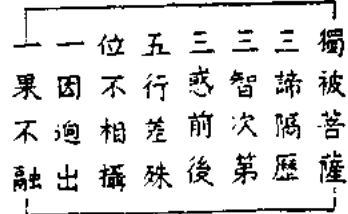 獨被菩薩
三諦隔歷
三智次第
三惑前後
五行差殊
位不相攝
一因逈出
一果不融